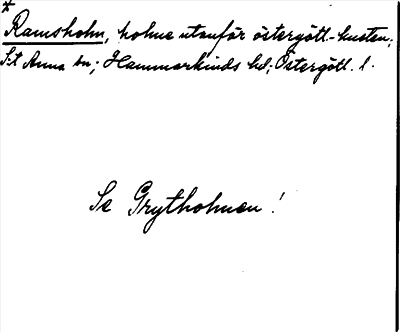 *
Ramsholm, holme utanför östergött.-kusten;
S:t Anna sn; Hammarkinds hd; Östergötl. l.
Se Grytholmen!